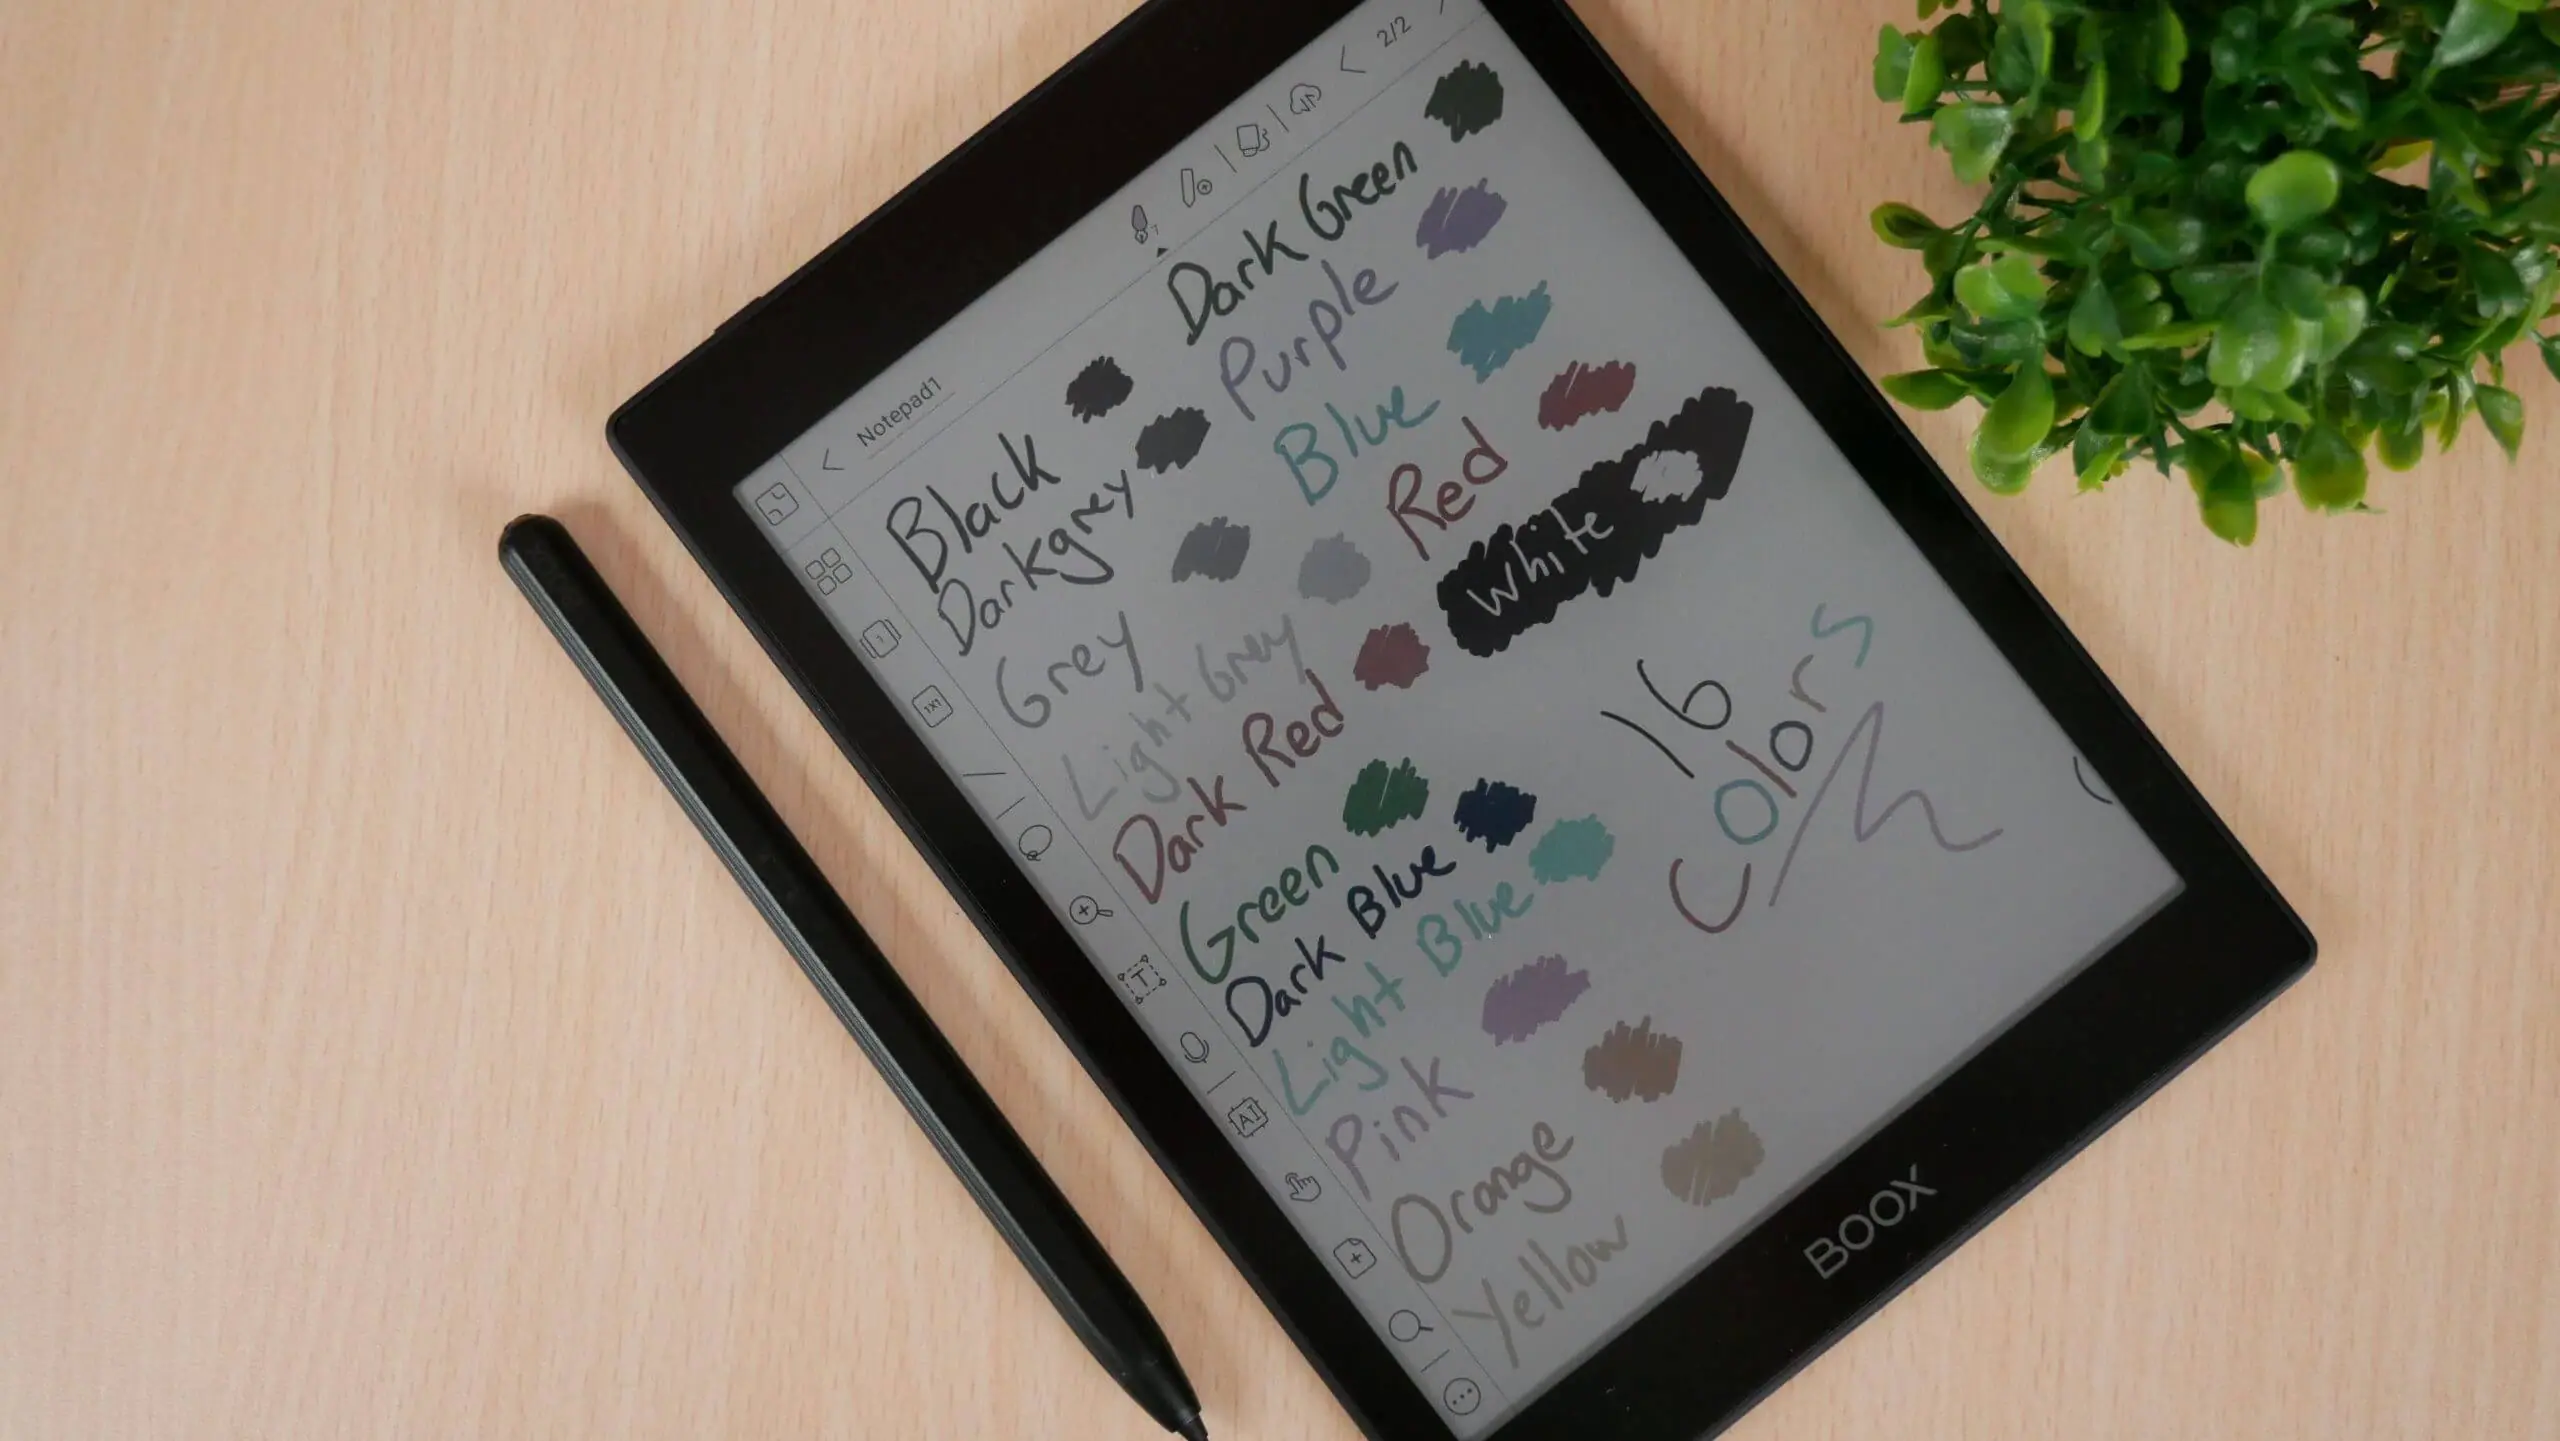 Notepad1
2/2
Black
Darkgrey
Grey
Light Grey
Dark Red
Green
Dark Blue
Light Blue
Pink
Orange
Yellow
Dark Green
Purple
Blue
Red
White
16
colors
1X1
T
AI
BOOX